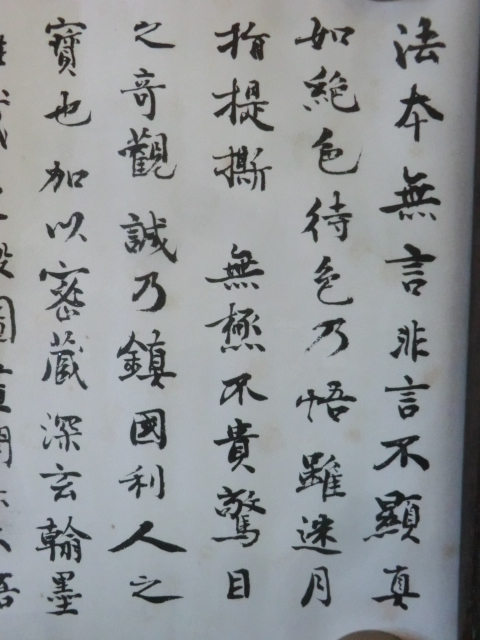 法本無言非言不顯真
如絕色待色乃悟雖迷月
指提撕 無極不貴驚目
之奇觀誠乃鎮國利人之
寶也加以密藏深玄翰墨